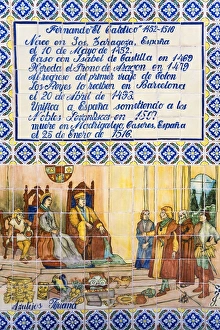 Fernando "El Católico" 1452-1516
Nace en Sos, Zaragoza, España
el 10 de Mayo de 1452.
Caso con Isabel de Castilla en 1469
Hereda el Trono de Aragon en 1479
Al regreso del primer viaje de Colon
los Reyes lo reciben en Barcelona
el 20 de Abril de 1493.
Unifica a España sometiendo a los
Nobles en 1507
muere en Madrigalejo, Caseres, España
el 23 de Enero de 1516.
Azulejos Triana